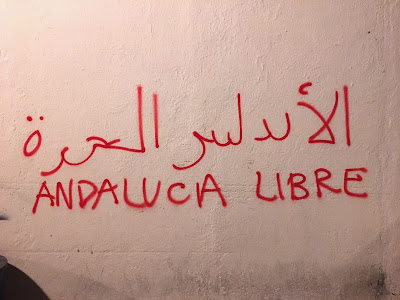 الأندلس الحرة
ANDALUCIA LIBRE